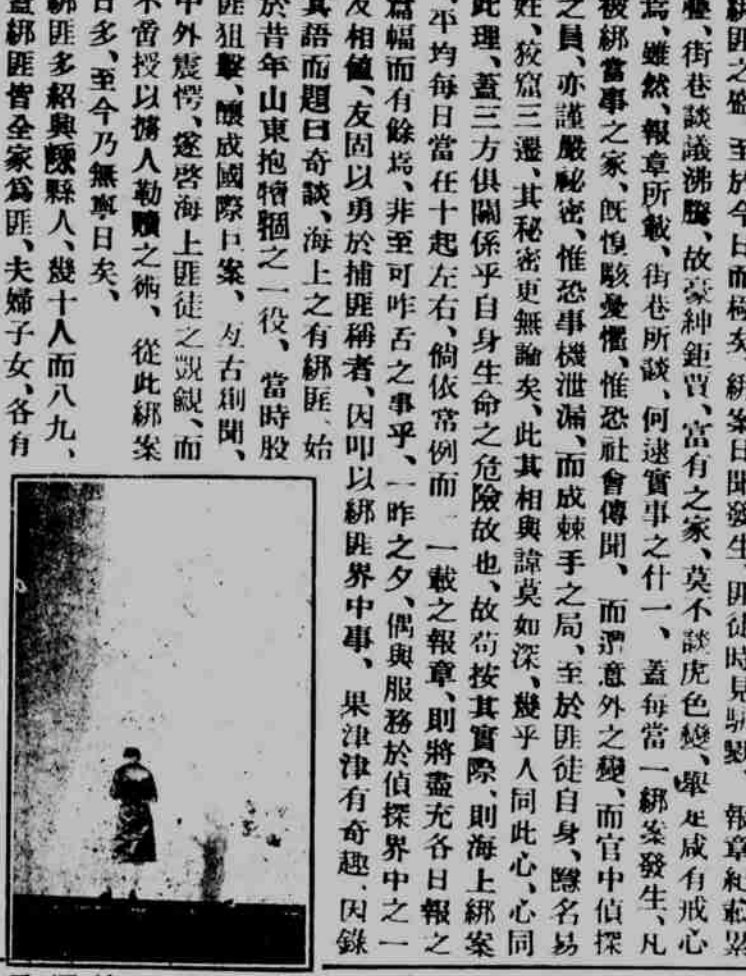 綁匪之盛、至於今日而極矣、綁案日聞發生、匪徒時見駢戮、報章紀載累
疊、街巷談議沸騰、故豪紳鉅賈、富有之家、莫不談虎色變、舉足咸有戒心
焉、雖然、報章所載、街巷所談、何逮實事之什一、蓋每當一綁案發生、凡
被綁當事之家、旣惶駭憂懼、惟恐社會傳聞、而遭意外之變、而官中偵探
之員、亦謹嚴祕密、惟恐事機泄漏、而成棘手之局、至於匪徒自身、隱名易
姓、狡窟三遷、其秘密更無論矣、此其相與諱莫如深、幾乎人同此心、心同
此理、蓋三方俱關係乎自身生命之危險故也、故苟按其實際、則海上綁案
、平均每日當在十起左右、倘依常例而一一載之報章、則將盡充各日報之
篇幅而有餘焉、非至可咋舌之事乎、一昨之夕、偶與服務於偵探界中之一
友相値、友固以勇於捕匪稱者、因叩以綁匪界中事、果津津有奇趣、因錄
其語而題曰奇談、海上之有綁匪、始
於昔年山東抱犢崮之一役、當時股
匪狙擊、釀成國際巨案、亙古創聞、
中外震愕、遂啓海上匪徒之覬覦、而
不啻授以擄人勒贖之術、從此綁案
日多、至今乃無寧日矣、
綁匪多紹興嵊縣人、幾十人而八九、
蓋綁匪皆全家爲匪、夫婦子女、各有